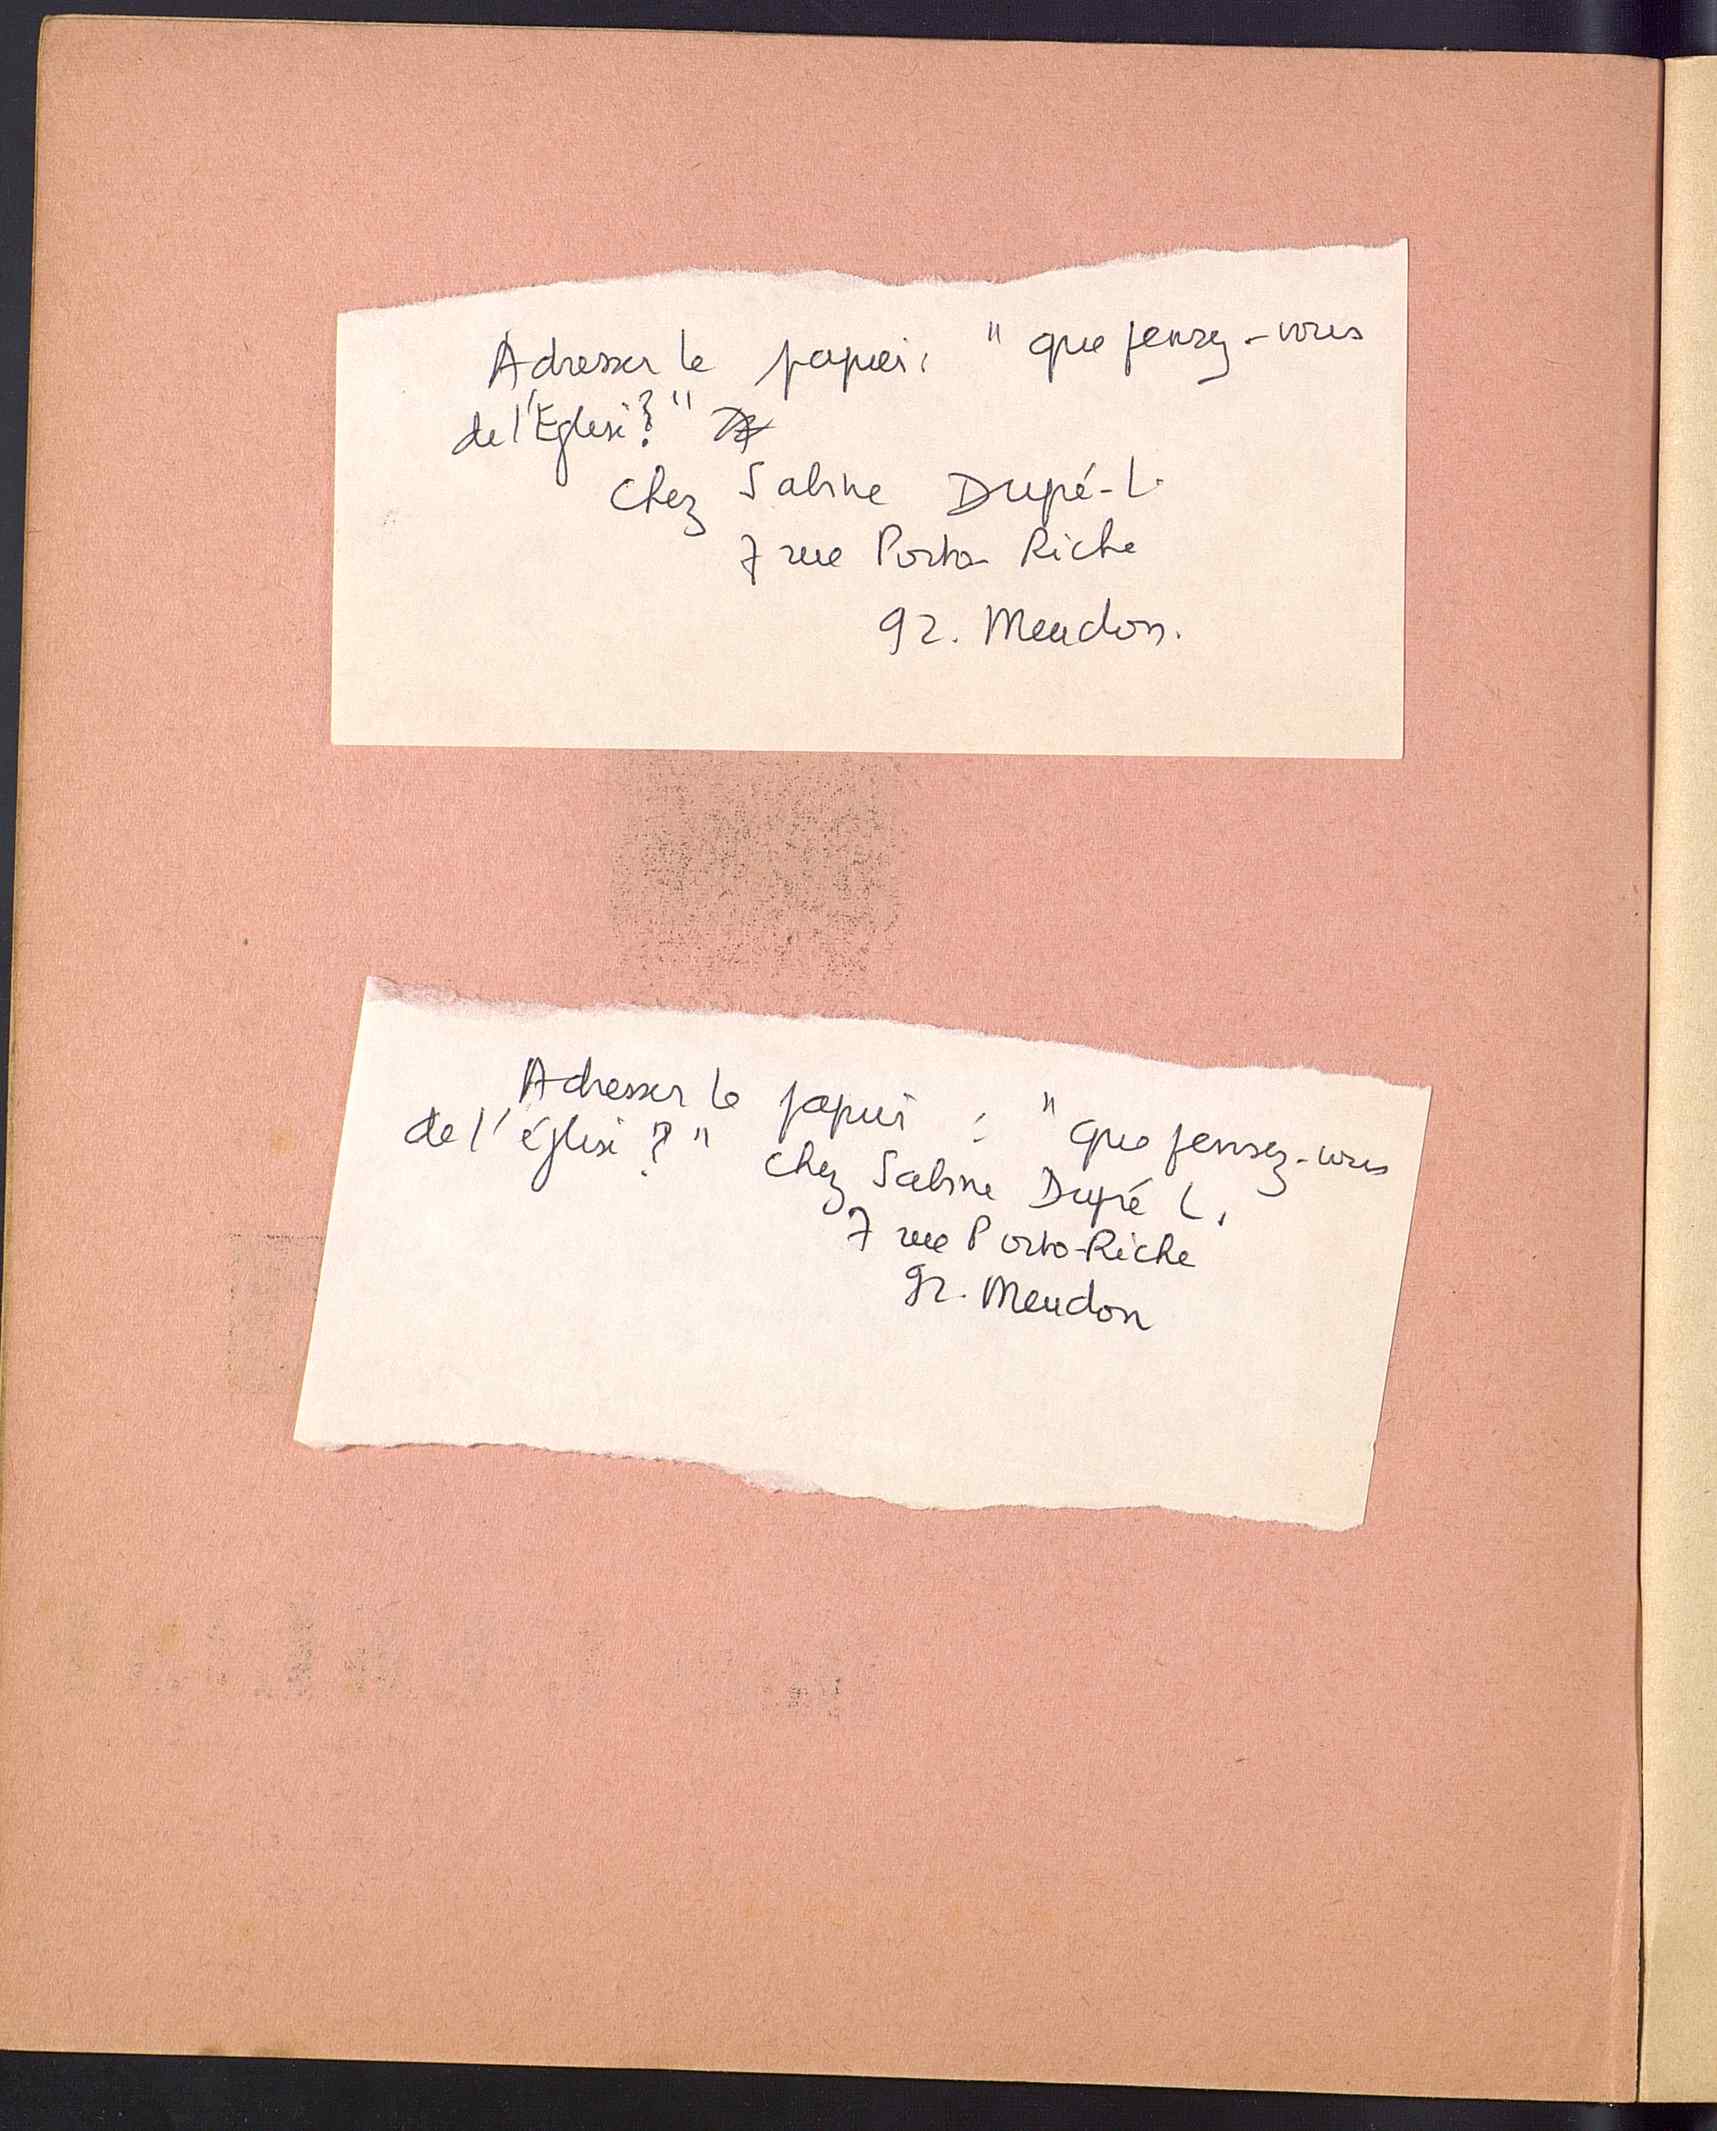 Adresser le papier : "que pensez-vous
de l'Eglise ?"
chez Sabine Dupé-L.
7 rue Porto-Riche
92. Meudon.
Adresser le papier : "que pensez-vous
de l'église ?" chez Sabine Dupé L.
7 rue Porto-Riche
92. Meudon